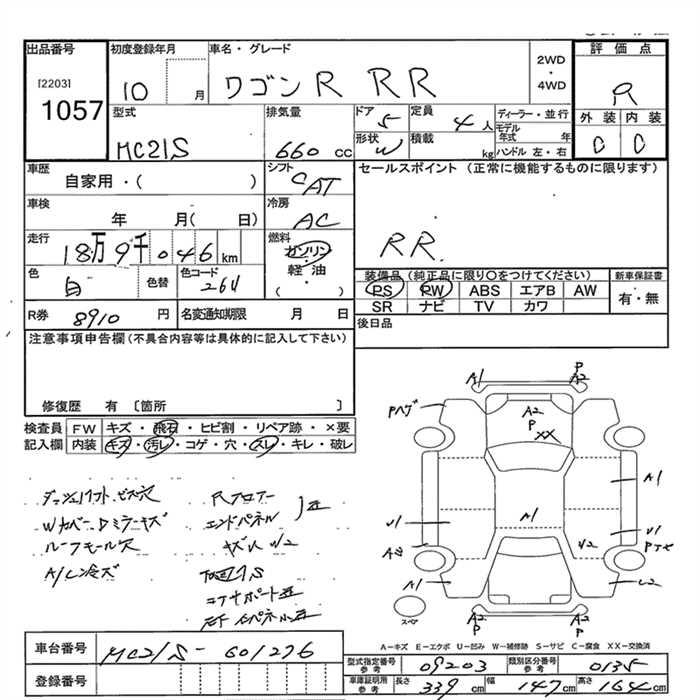 出品番号 初度登録年月 車名・グレード 評価点
[2203] 1057
10 月 ワゴンR RR 2WD・4WD R
型式 排気量 ドア 定員 ディーラー・並行 外装 内装
MC21S 660 cc 5 4人 モデル年式 年
形状 W 積載 kg ハンドル 左・右
車歴 シフト セールスポイント (正常に機能するものに限ります)
自家用・( ) CAT
車検 冷房
年 月( 日) AC
走行 燃料 RR.
18万9千046km ガソリン・軽油
( ・ )
色 色替 色コード 装備品(純正品に限り○をつけてください) 新車保証書
白 26U PS PW ABS エアB AW 有・無
SR ナビ TV カワ
R券 8910円 名変通知期限 月 日 後日品
注意事項申告欄(不具合内容等は具体的に記入して下さい)
修復歴 有 〔箇所 〕
検査員記入欄 FW キズ・飛石・ヒビ割・リペア跡・×要
内装 キズ・汚レ・コゲ・穴・スレ・キレ・破レ
A1 P A2
A2 P XX
A1
A1
U1
A1 U2
A2 P
A2 P
スペア
ダッシュリフト ビス穴 Rフロアー
Wカバー Dミラーキズ エンドパネル
ルーフモール欠
A/C冷ズ
A-キズ E-エクボ U-凹み W-補修跡 S-サビ C-腐食 XX-交換済
車台番号 MC21S-601276
登録番号
型式指定番号 参考 09203 類別区分番号 参考 0135
車庫証明用 参考 長さ 339cm 幅 147cm 高さ 164cm